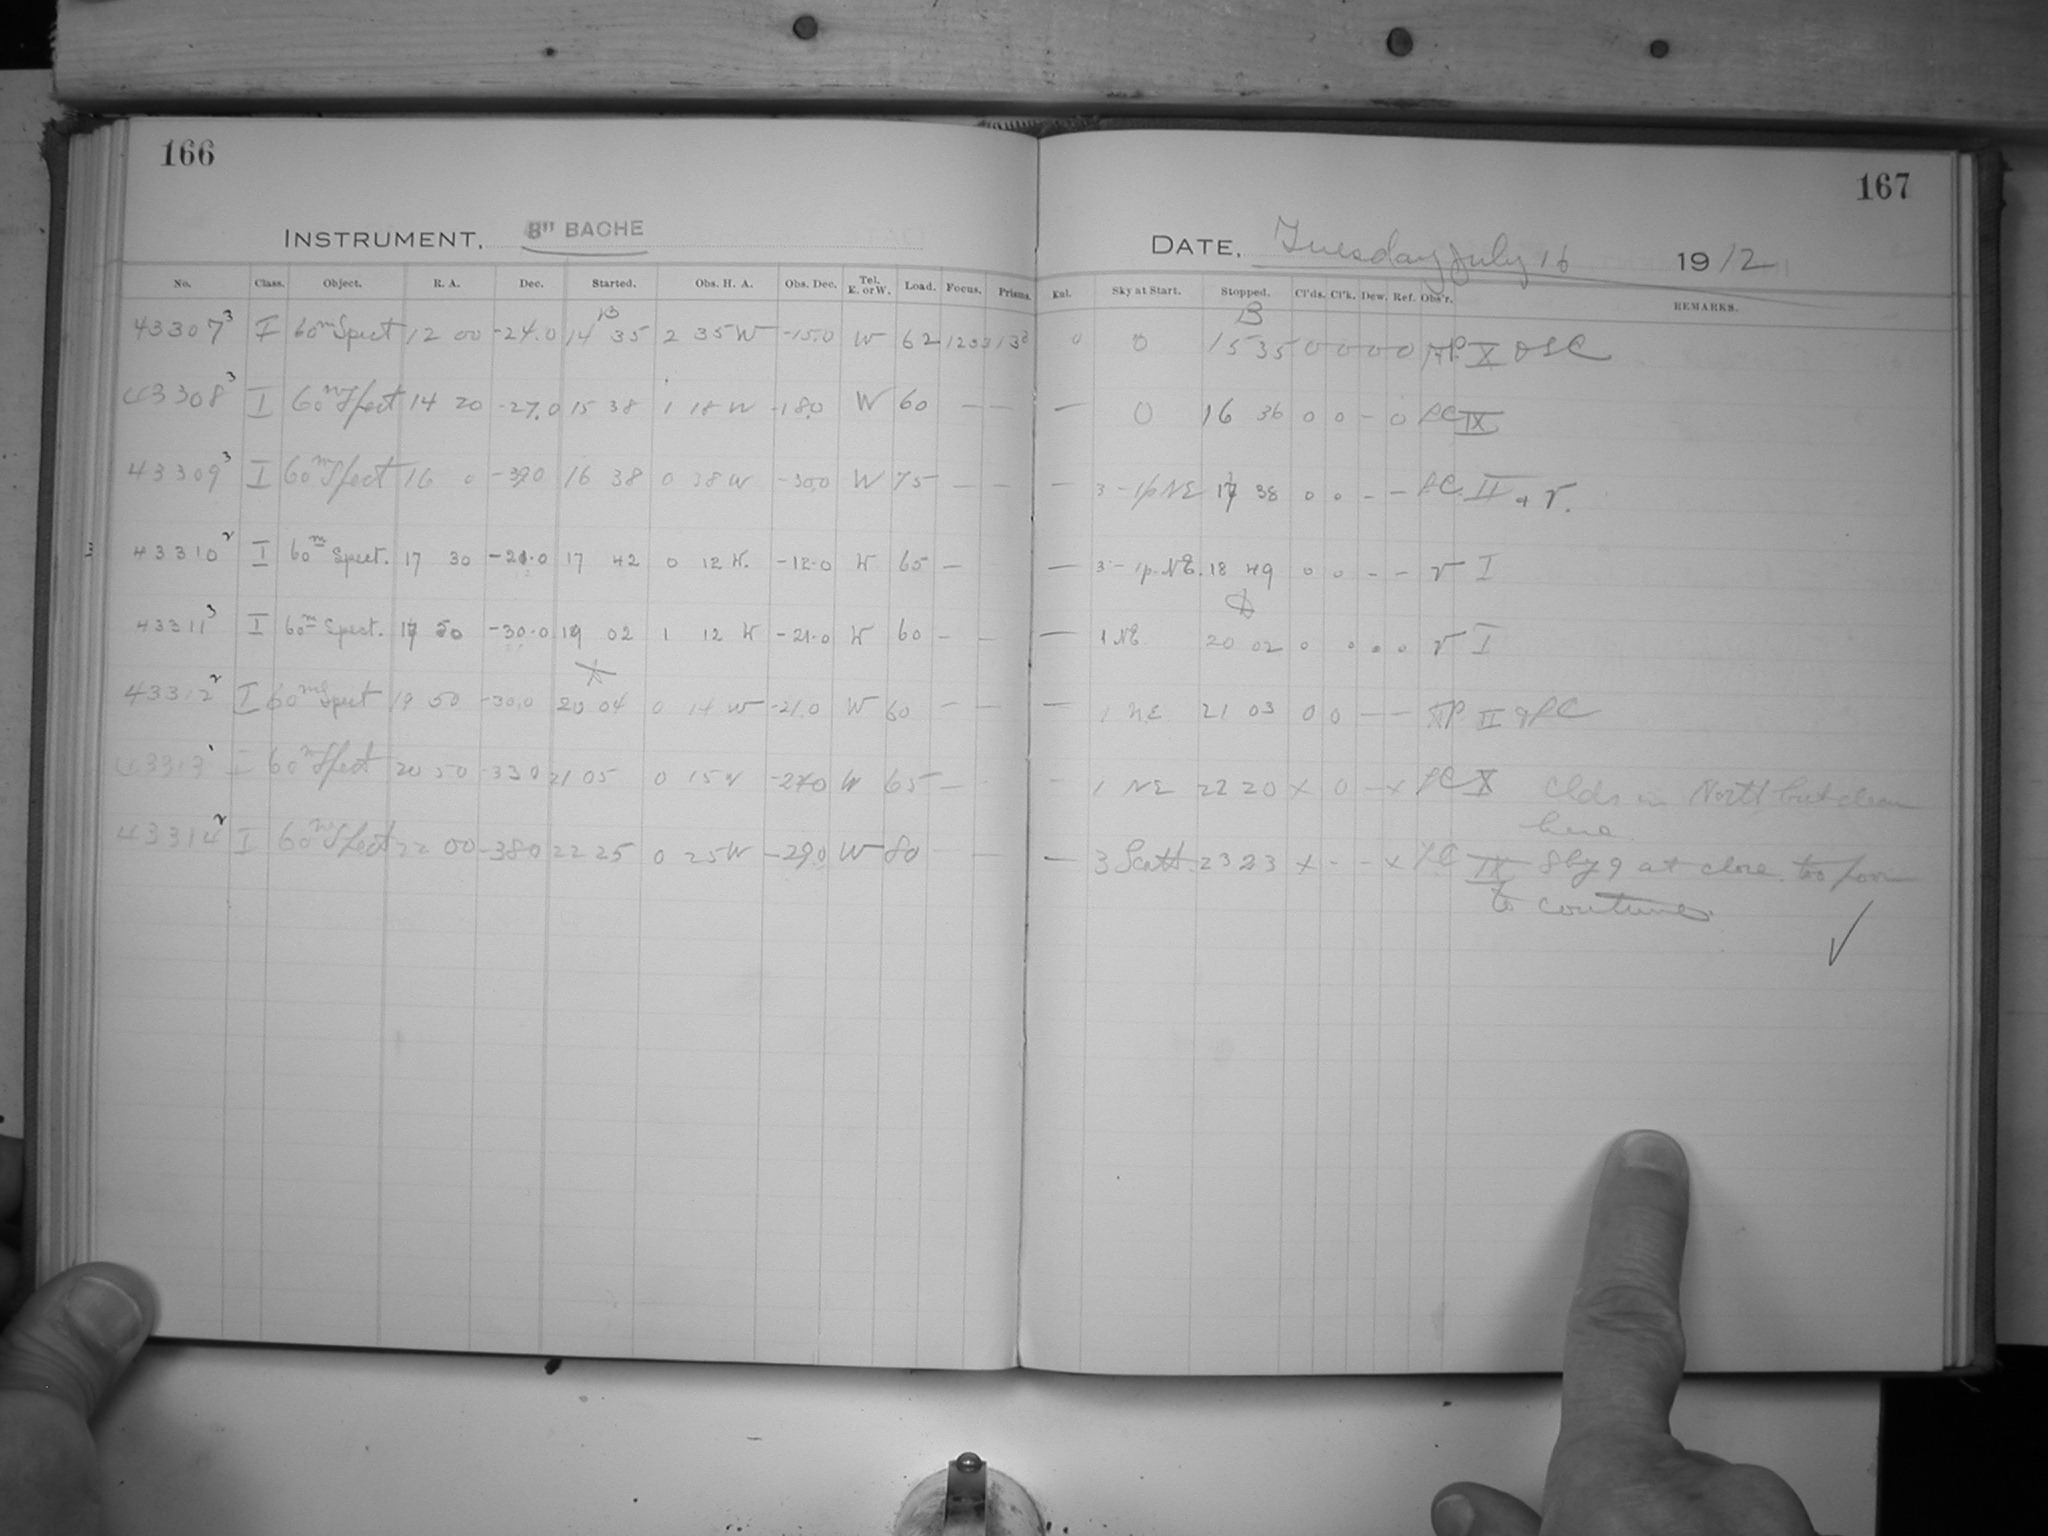 166
167
INSTRUMENT, 8" BACHE
DATE, Tuesday July 16 1912
No. Class. Object. R. A. Dec. Started. Obs. H. A. Obs. Dec. Tel. E. or W. Load. Focus. Prisms. Kul. Sky at Start. Stopped. Cl'ds. Cl'k. Dew. Ref. Obs'r. REMARKS.
B B
43307³ I 60m Spect 12 00 -24.0 14 35 2 35 W -15.0 W 62 0 0 15 35 0 0 0 0 X
43308³ I 60m Spect 14 20 -27.0 15 38 1 18 W -18.0 W 60 — — — 0 16 36 0 0 - 0 LC IX
43309³ I 60m Spect 16 0 -39.0 16 38 0 38 W -30.0 W 75 — — — 3 - 1p NE 17 38 0 0 - - LC II + V.
43310² I 60m Spect. 17 30 -21.0 17 42 0 12 W. -12.0 W 65 — — 3 - 1p. NE. 18 49 0 0 - - V I
43311³ I 60m Spect. 17 50 -30.0 19 02 1 12 W -21.0 W 60 - - — 1 NE 20 02 0 0 V I
43312² I 60m Spect 19 50 -30.0 20 04 0 14 W -21.0 W 60 — — — 1 N.E. 21 03 0 0 — — II & LC
43313 I 60m Spect 20 50 -33.0 21 05 0 15 W -24.0 W 65 — 1 NE 22 20 x 0 - x LC X Clds in North but clear
here
43314² I 60m Spect 22 00 -38.0 22 25 0 25 W -29.0 W 80 — — — 3 Scatt. 23 23 x - - x LC IX Sky 9 at close. too poor
to continue